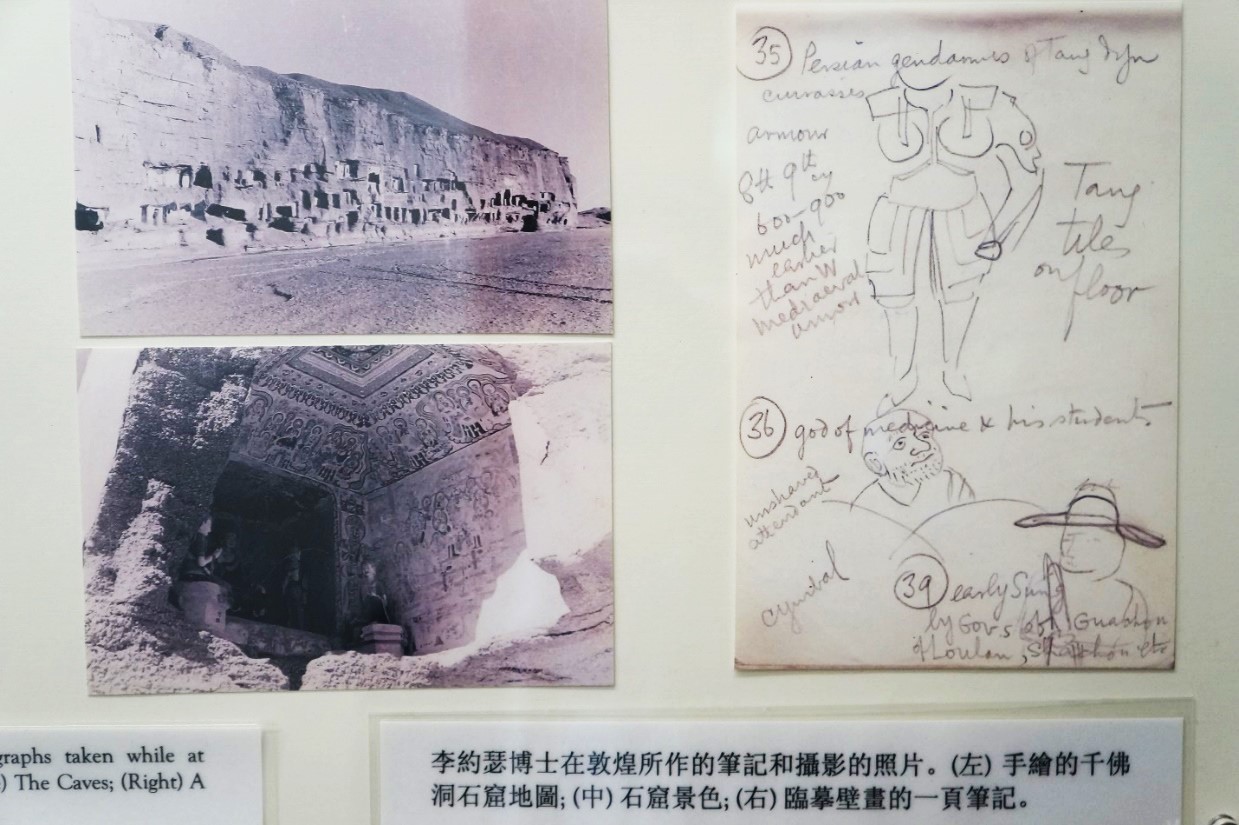 35 Persian gendarmes of Tang Dyn
cuirasses
armour
8th 9th cy
600-900
much
earlier
than W
mediaeval
armor
Tang
tiles
on floor
36 god of medicine & his students
unshaved
attendant
cymbal
39 early Sung
by Gov.s of Guazhou
of Loulan, etc
graphs taken while at
) The Caves; (Right) A
李約瑟博士在敦煌所作的筆記和攝影的照片。(左) 手繪的千佛
洞石窟地圖; (中) 石窟景色; (右) 臨摹壁畫的一頁筆記。